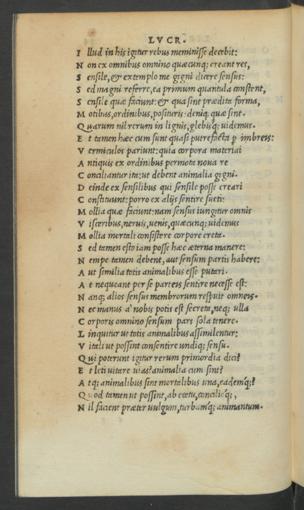 LVCR.
I llud in his igitur rebus meminisse decebit:
N on ex omnibus omnino quæcunq; creant res,
S ensile, & extemplo me gigni dicere sensus:
S ed magni referre, ea primum quantula constent,
S ensile quæ faciunt: & qua sint prædita forma,
M otibus, ordinibus, posituris deniq; quæ sint.
Q uarum nil rerum in lignis, glebisq; uidemus.
E t tamen hæc cum sunt quasi putrefacta p imbreis:
V ermiculos pariunt: quia corpora materiai
A ntiquis ex ordinibus permota noua re
C onciliantur ita: ut debent animalia gigni.
D einde ex sensilibus qui sensile posse creari
C onstituunt: porro ex aliis sentire sueti:
M ollia quæ faciunt: nam sensus iungitur omnis
V isceribus, neruis, uenis, quæcunq; uidemus
M ollia mortali consistere corpore creta.
S ed tamen esto iam posse hæc æterna manere:
N empe tamen debent, aut sensum partis habere:
A ut similia totis animalibus esse putari.
A t nequeant per se parteis sentire necesse est:
N anq; alios sensus membrorum respuit omneis.
N ec manus a' nobis potis est secreta, neq; ulla
C orporis omnino sensum pars sola tenere.
L inquitur ut totis animalibus assimilentur:
V itali ut possint consentire undiq; sensu.
Q ui poterunt igitur rerum primordia dici?
E t leti uitare uias? animalia cum sint?
A tq; animalibus sint mortalibus una, eademq;?
Q uod tamen ut possint, ab cœtu, concilioq;,
N il facient præter uulgum, turbamq; animantum.